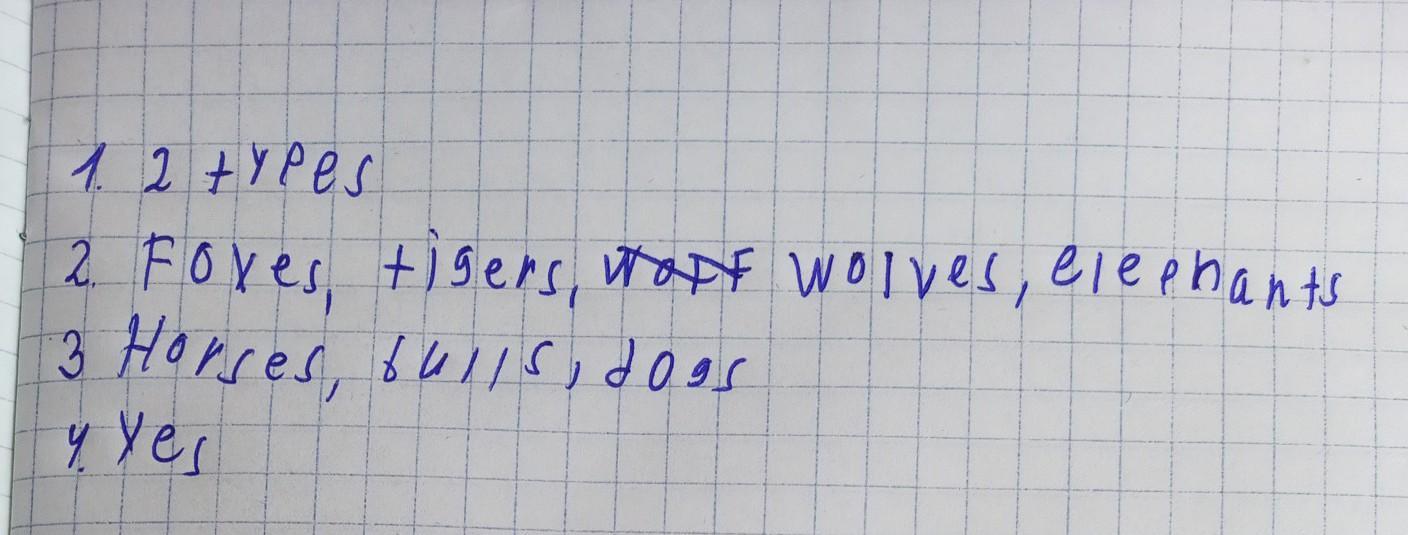 1. 2 types
2. Foxes, tigers, wolves, elephants
3 Horses, bulls, dogs
4. Yes